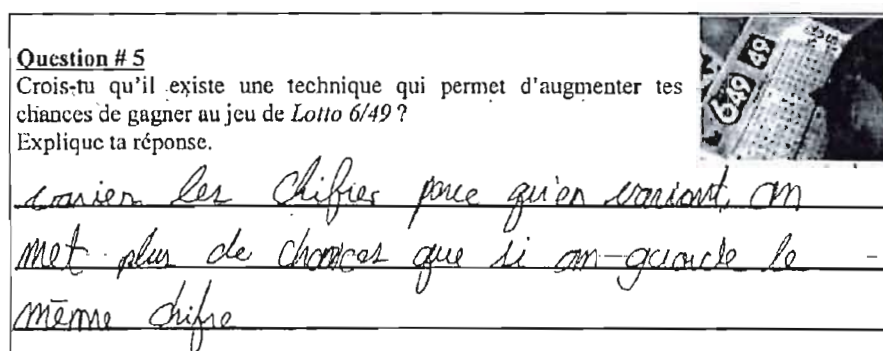 Question # 5
Crois-tu qu'il existe une technique qui permet d'augmenter tes
chances de gagner au jeu de Lotto 6/49 ?
Explique ta réponse.
649 49
varier les chifres parce qu'en variant, on
met plus de chances que si on garde le
même chifre